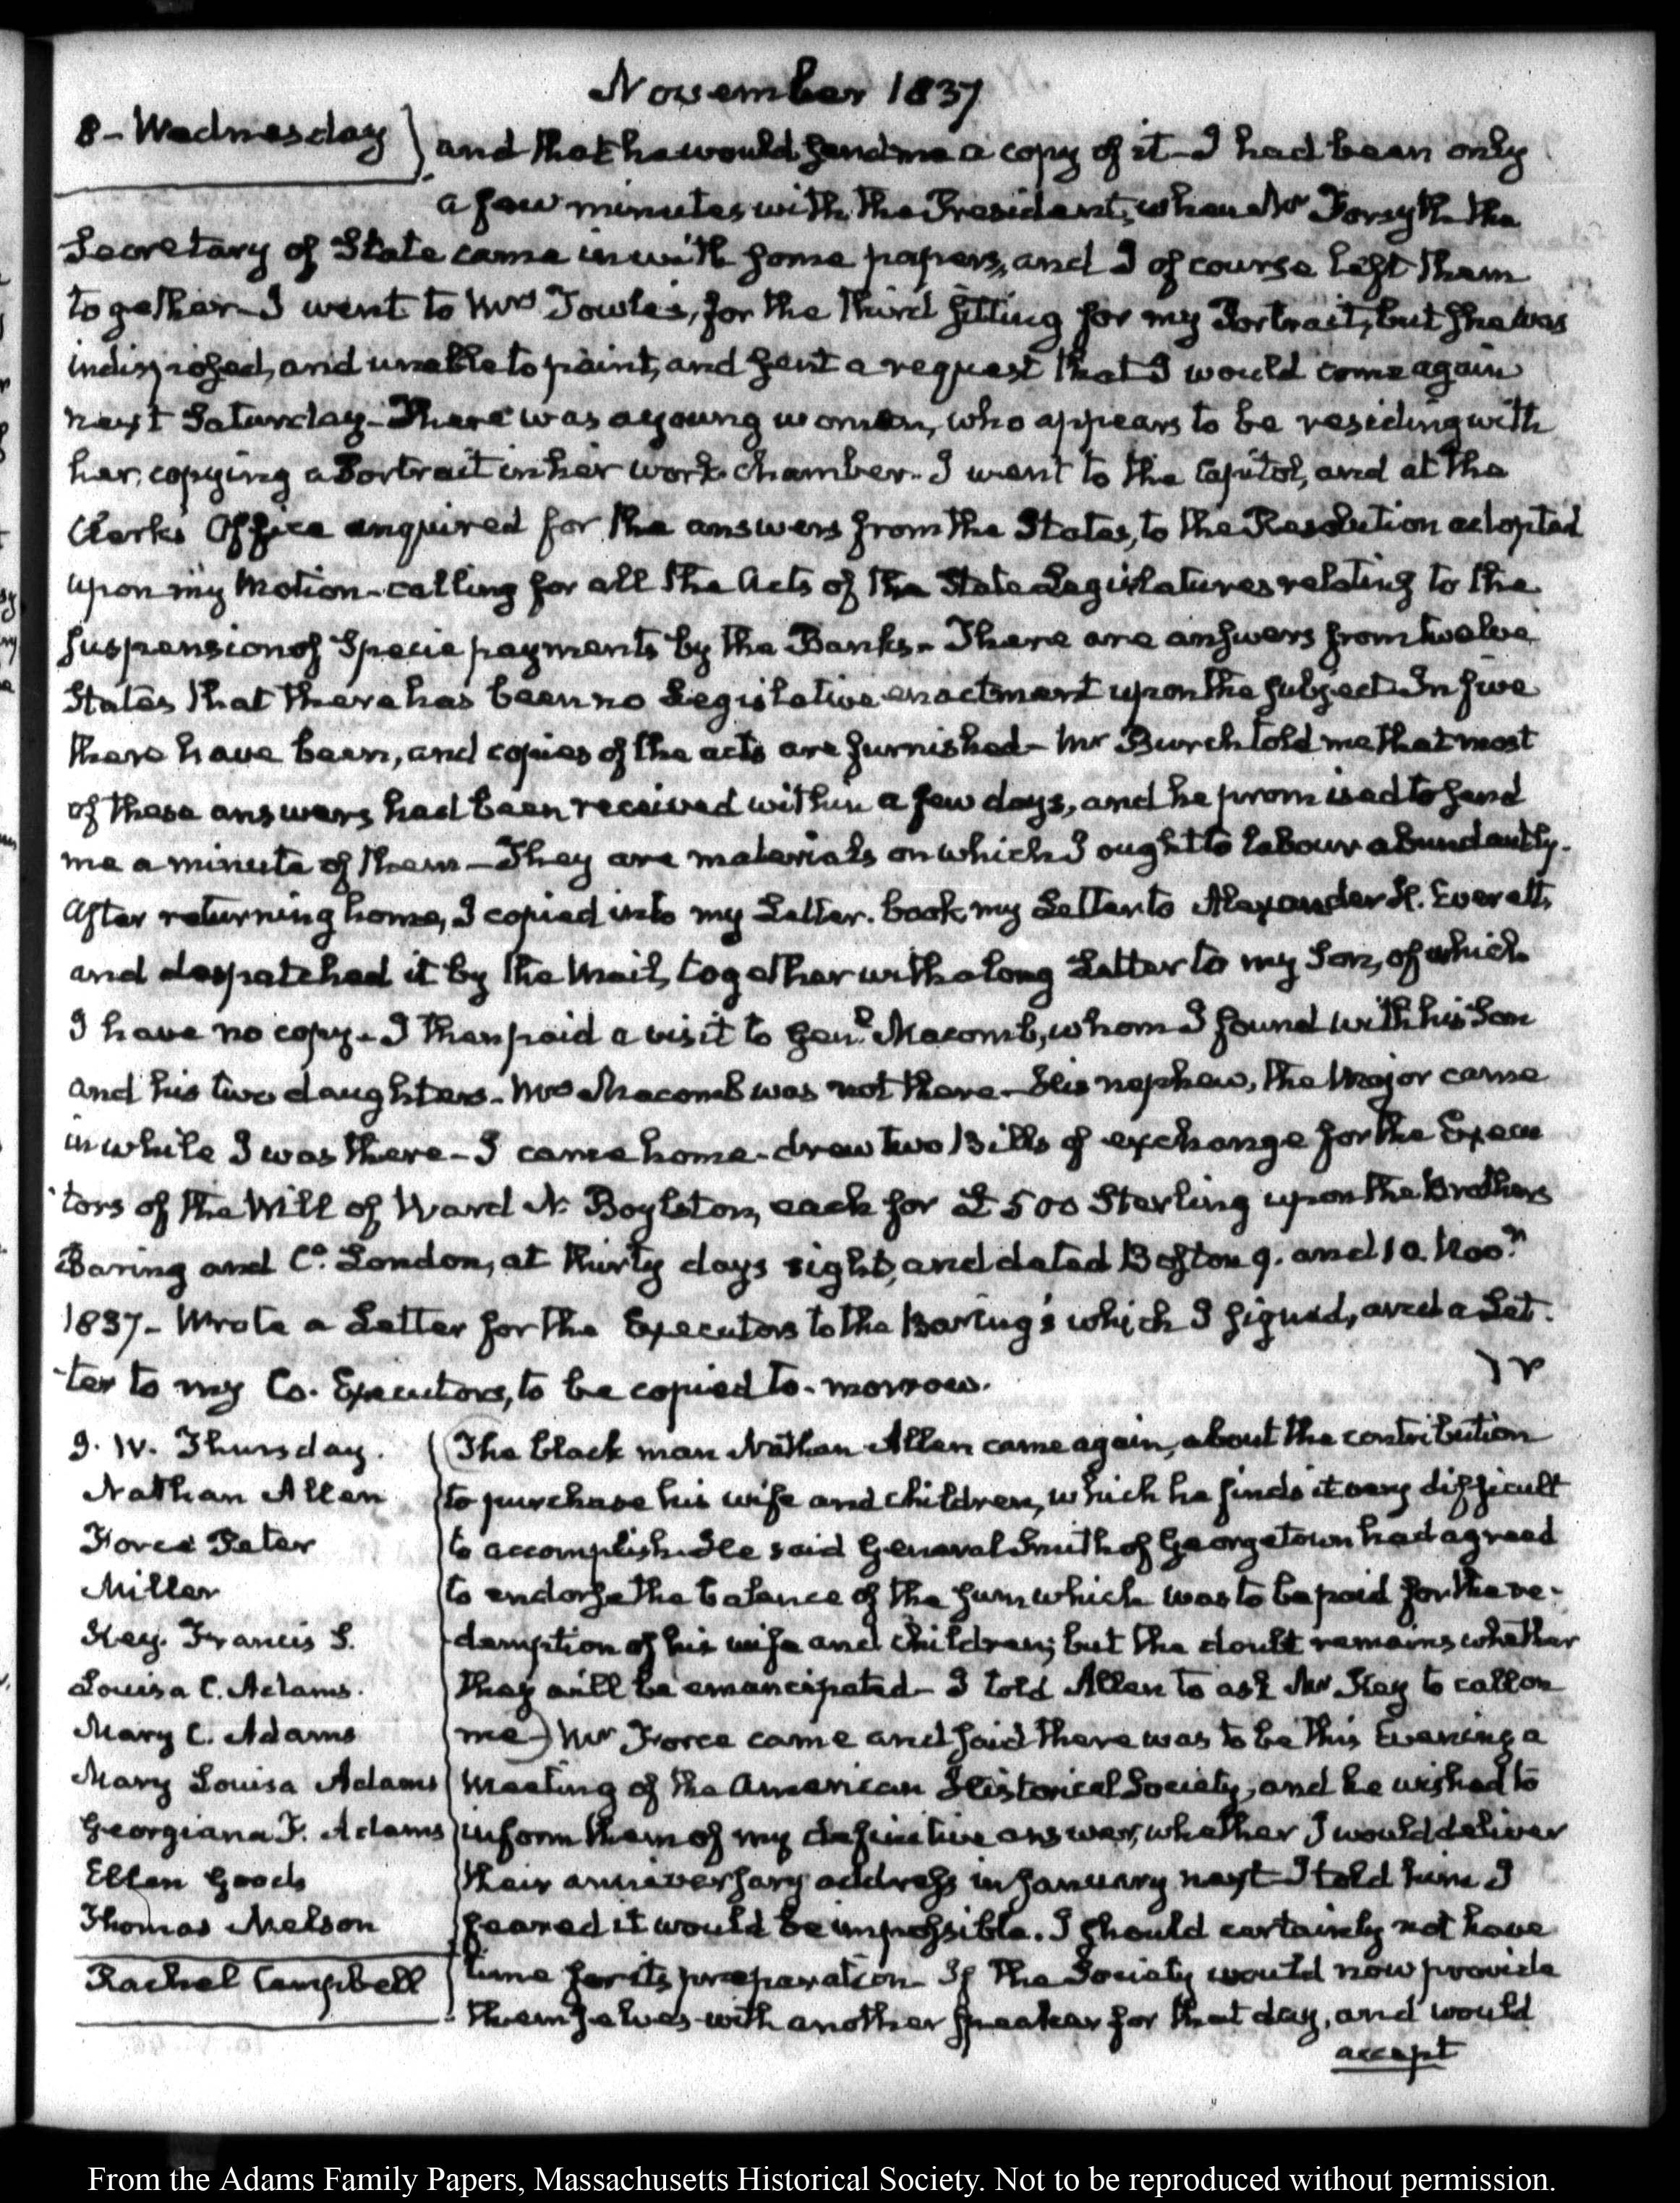 November 1837
8 - Wednesday
and that he would send me a copy of it - I had been only
a few minutes with the President, when Mr Forsyth the
Secretary of State came in with some papers, and I of course left them
together - I went to Mrs Towle's, for the third sitting for my Portrait, but she was
indisposed, and unable to paint, and sent a request that I would come again
next Saturday - There was a young woman, who appears to be residing with
her, copying a Portrait in her work-chamber. I went to the Capitol, and at the
Clerks Office enquired for the answers from the States, to the Resolution adopted
upon my Motion - calling for all the Acts of the State Legislatures relating to the
suspension of Specie payments by the Banks - There are answers from twelve
States that there has been no Legislative enactment upon the subject - In five
there have been, and copies of the acts are furnished - Mr Burch told me that most
of these answers had been received within a few days, and he promised to send
me a minute of them - They are materials on which I ought to labour abundantly.
After returning home, I copied into my Letter-book, my Letter to Alexander H. Everett,
and despatched it by the Mail, together with a long Letter to my Son, of which
I have no copy - I then paid a visit to Genl. Macomb, whom I found with his Son
and his two daughters - Mrs Macomb was not there - His nephew, the Major came
in while I was there - I came home - drew two Bills of exchange for the Execu
tors of the Will of Ward N. Boylston, each for £500 Sterling upon the Brothers
Baring and Co. London, at thirty days sight, and dated Boston 9. and 10. Novr.
1837 - Wrote a Letter for the Executors to the Baring's which I signed, and a Let-
ter to my Co-Executors, to be copied to-morrow.
9. IV. Thursday.
Nathan Allen
Force Peter
Miller
Key. Francis S.
Louisa C. Adams.
Mary C. Adams
Mary Louisa Adams
Georgiana F. Adams
Ellen Gooch
Thomas Nelson
Rachel Campbell
(The black man Nathan Allen came again, about the contribution
to purchase his wife and children, which he finds it very difficult
to accomplish. He said General Smith of Georgetown had agreed
to endorse the balance of the sum which was to be paid for the re-
demption of his wife and children; but the doubt remains whether
they will be emancipated - I told Allen to ask Mr Key to call on
me) Mr Force came and said there was to be this Evening a
Meeting of the American Historical Society, and he wished to
inform them of my definitive answer, whether I would deliver
their anniversary address in January next - I told him I
feared it would be impossible. I should certainly not have
time for its preparation - If the Society would now provide
themselves with another speaker for that day, and would
accept
From the Adams Family Papers, Massachusetts Historical Society. Not to be reproduced without permission.